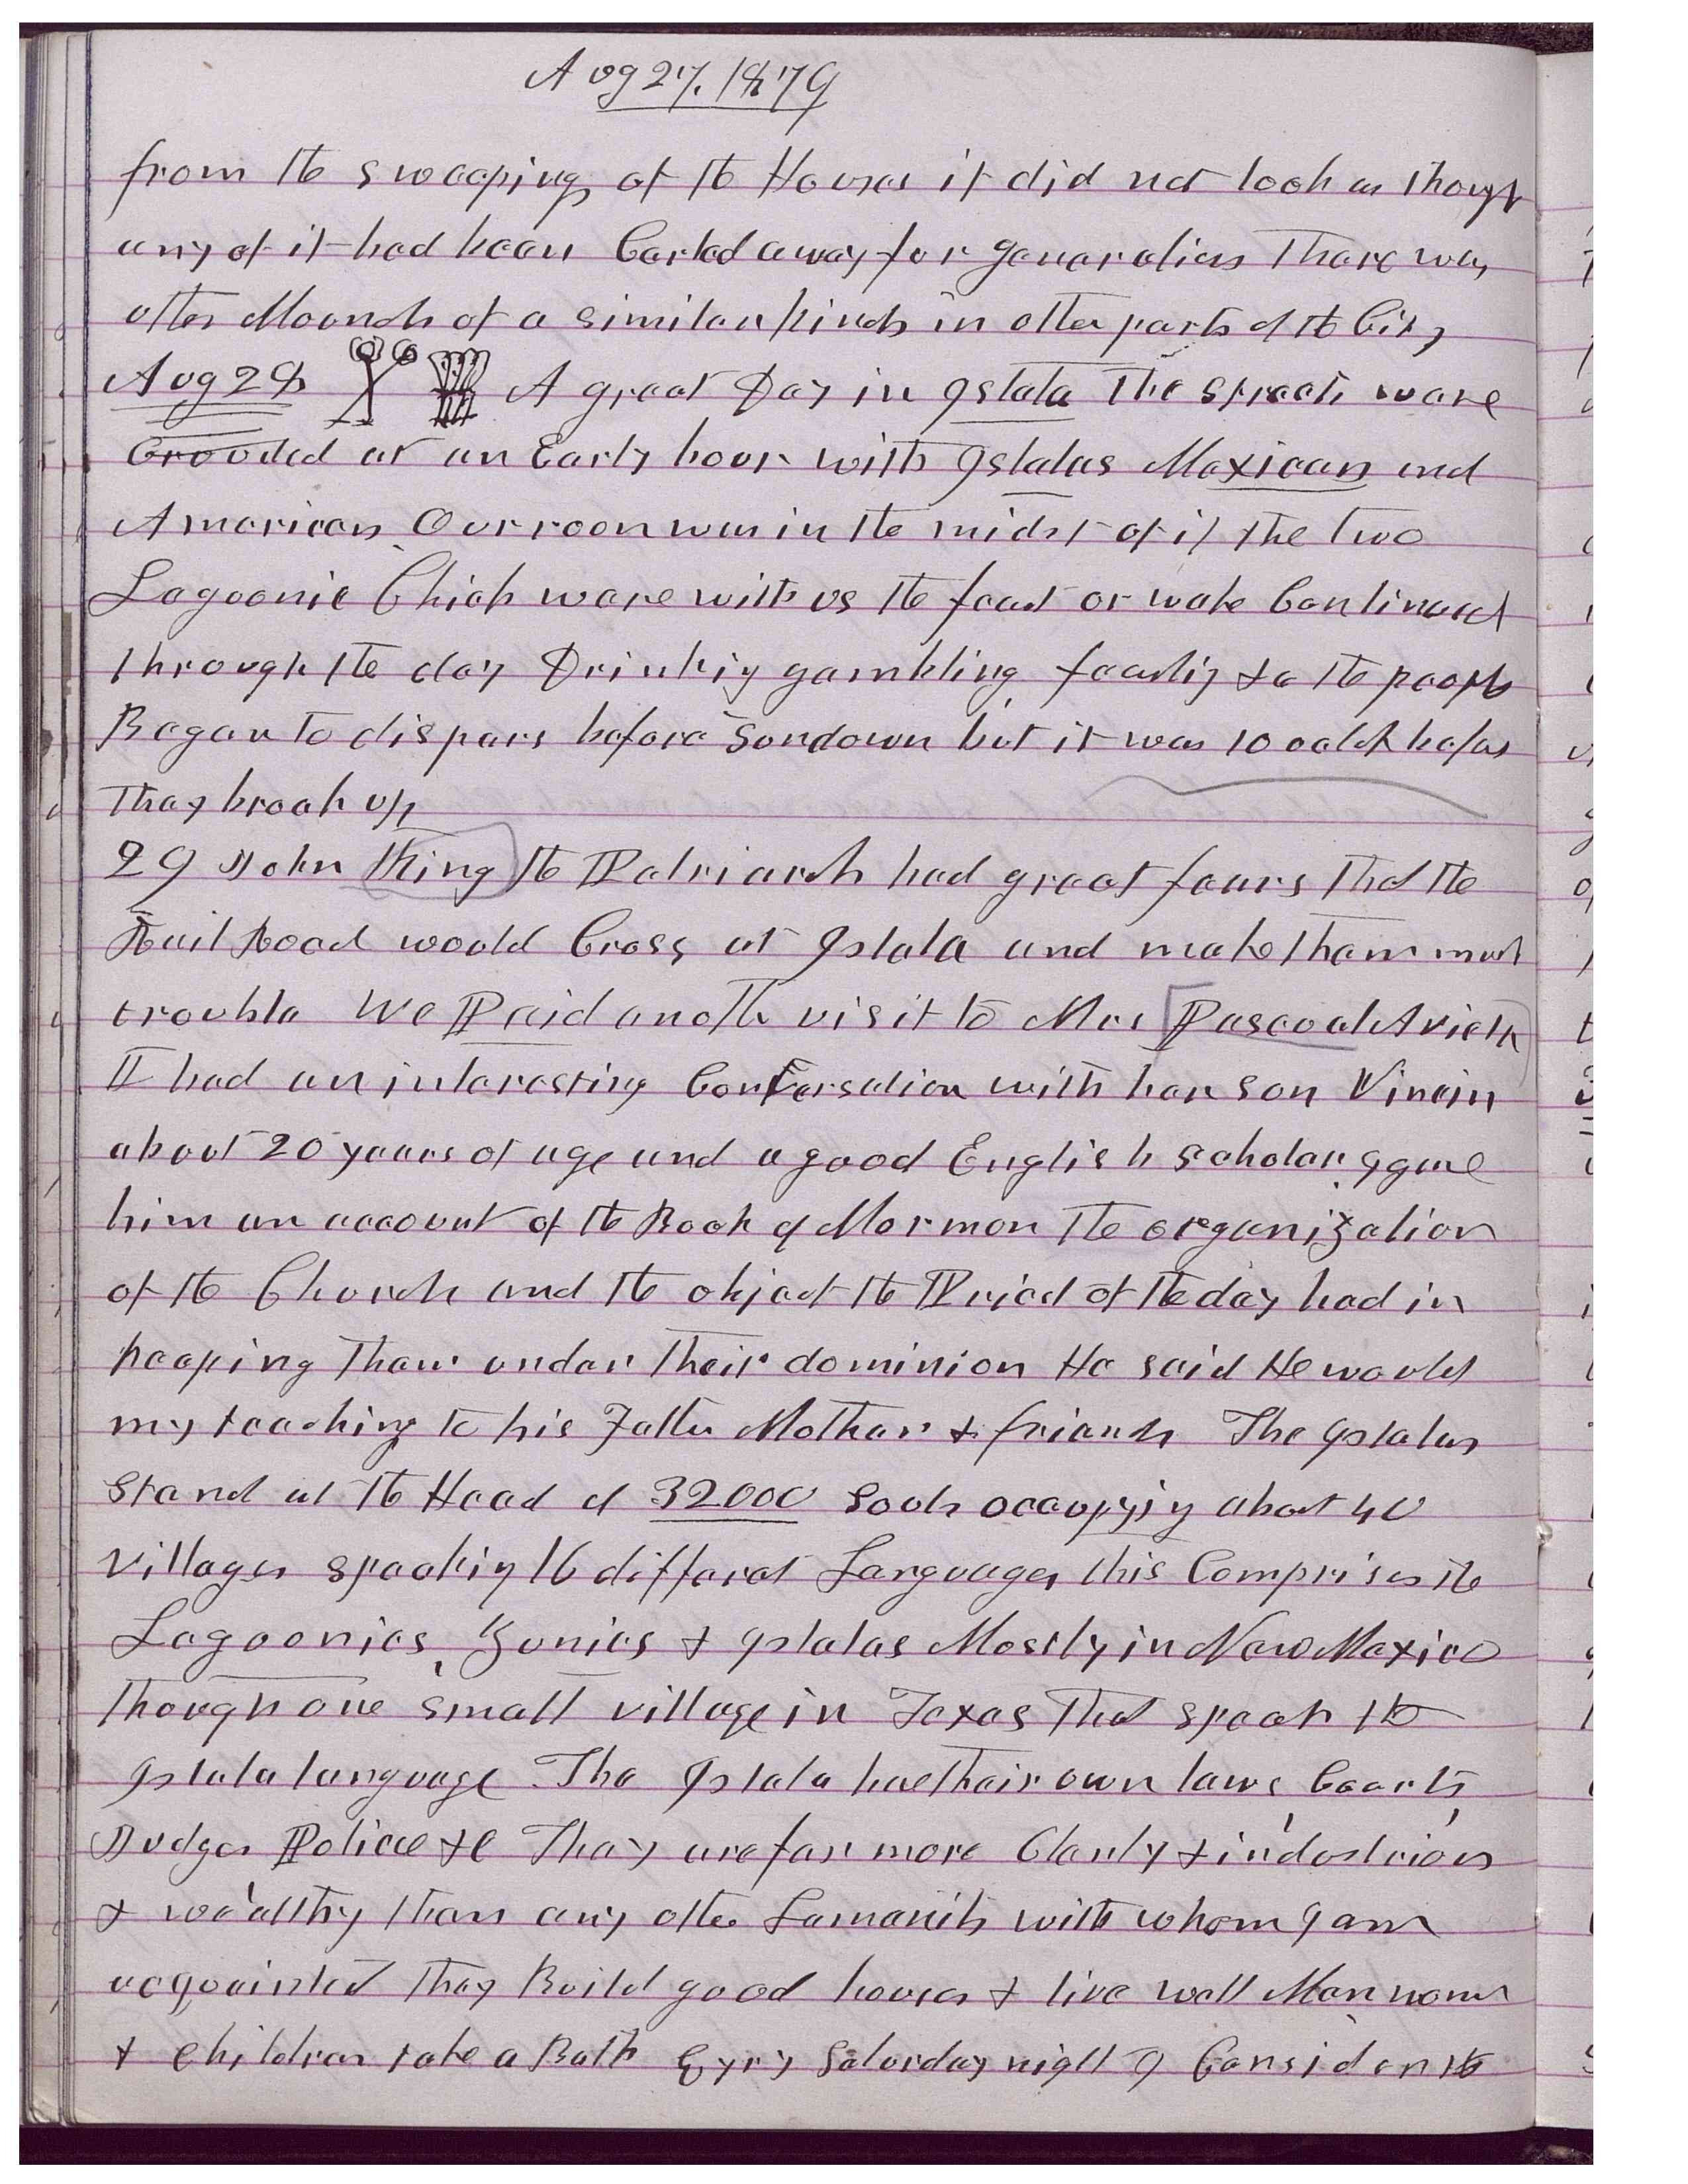 Aug 27, 1879
from the sweepings of the Houses it did not look as though
any of it had been Carted away for generations There was
other Mounds of a similar kinds in other parts of the City
Aug 28 A great Day in Isleta The streets were
Crouded at an Early hour with Isletas Mexican and
American Our room was in the midst of it the two
Lagoonie Chiefs were with us the feast or wake Continued
through the day Drinking gambling feasting &c the people
Began to dispers before Sundown but it was 10 oclok befor
They broak up
29 John King the Patriarch had great fears that the
Rail Road would Cross at Isleta and make them much
trouble We Paid another visit to Mrs Pascoal Avieta
I had an interesting Conversation with her son
about 20 years of age and a good English scholar I gave
him an account of the Book of Mormon the organization
of the Church and the object the Priest of the day had in
keeping them under their dominion He said He would
my teaching to his Father Mother & friends The Isletas
Stand at the Head of 32000 Souls occupying about 40
villages speaking 16 differat Languages this Comprises the
Lagoonies, Zunies & Isletas Mostly in New Mexico
though one small village in Texas that speak the
Isleta language The Isleta have their own laws Courts,
Judges Police &c They are far more Clenly & industrious
& wealthy than any other Lamanits with whom I am
acquainted They Build good houses & live well Men women
& children take a Bath Evry Saturday night I Consider the